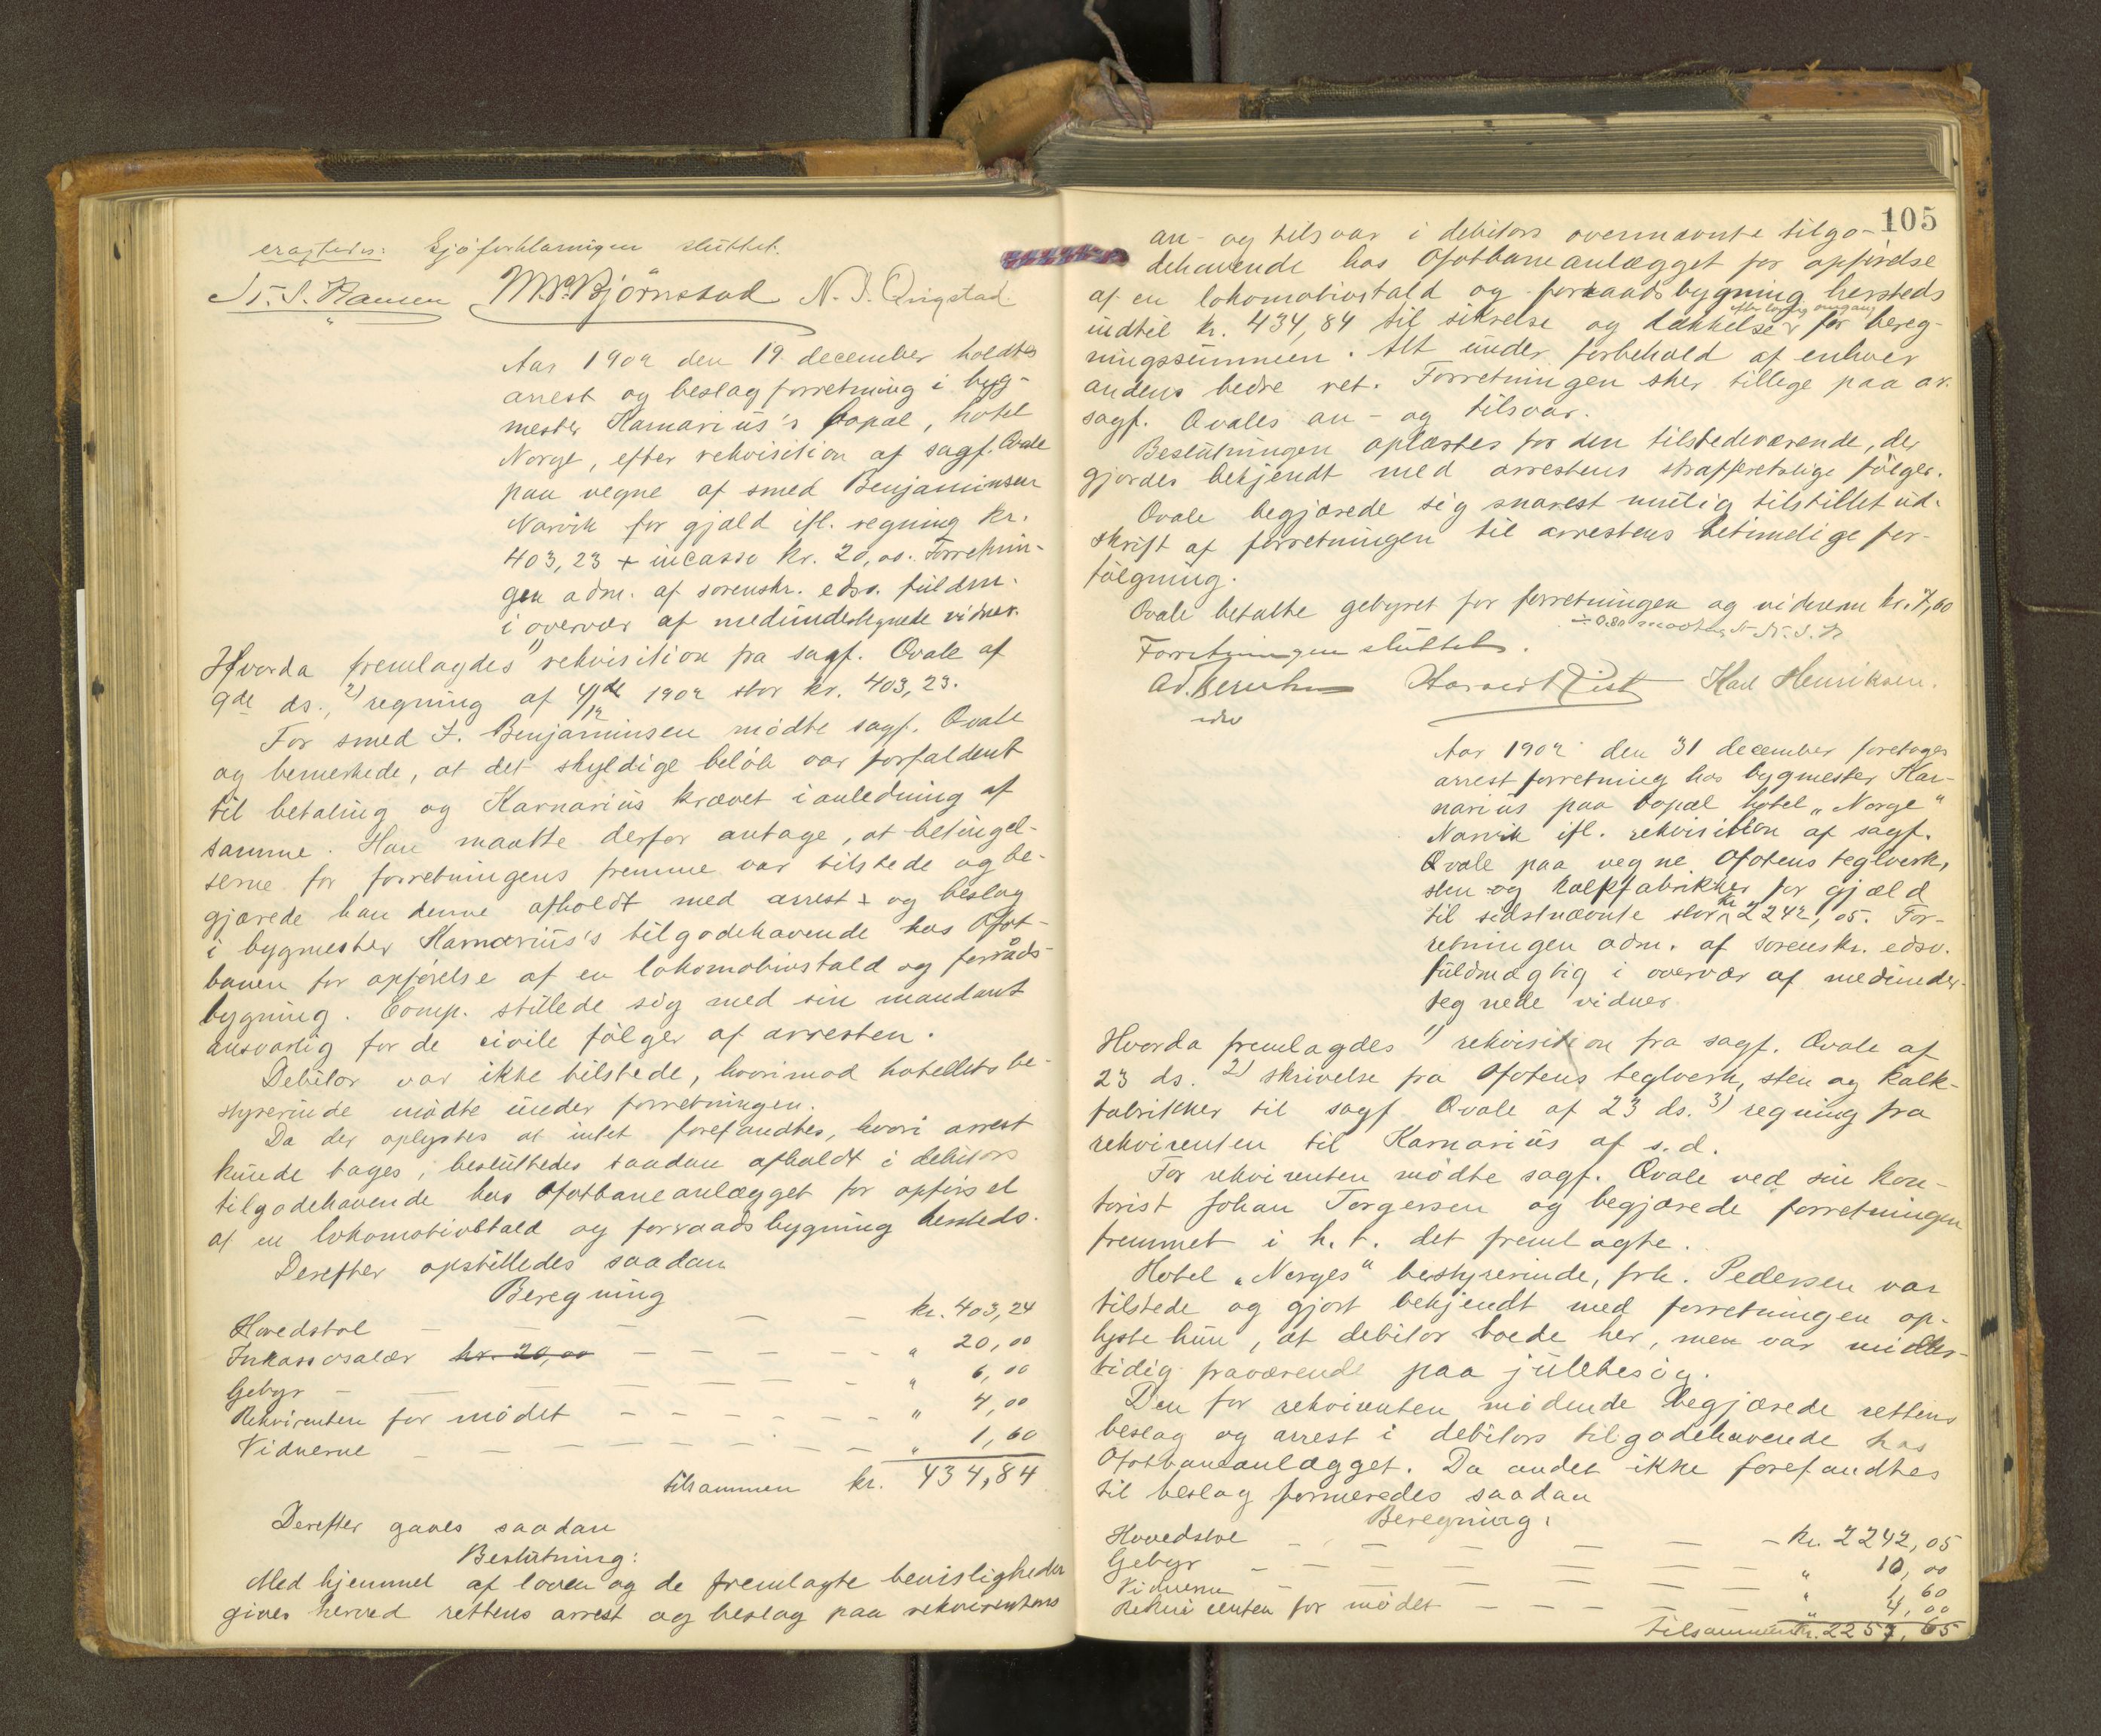 eragtedes: Sjöforklaringen sluttet.
St. S. Hansen M. P. Björnstad N. J. Qvigstad.
Aar 1902 den 19 december holdtes
arrest og beslagforretning i byg-
mester Karnarius's bopæl, hotel
Norge, efter rekvisition af sagf. Qvale
paa vegne af smed Benjaminsen
Narvik for gjæld ifl. regning kr.
403,23 + incasso kr. 20,00. Forretnin-
gen adm. af sorenskr. edsv. fuldm.
i overvær af medundertegnede vidner.
Hvorda fremlagdes 1) rekvisition fra sagf. Qvale af
9de ds., 2) regning af 4/12 de 1902 stor kr. 403,23.
For smed I. Benjaminsen mödte sagf. Qvale
og bemerkede, at det skyldige belöb var forfaldent
til betaling og Karnarius krævet i anledning af
samme. Han maatte derfor antage, at betingel-
serne for forretningens fremme var tilstede og be-
gjærede han denne afholdt med arrest + og beslag
i bygmester Karnarius's tilgodehavende hos Ofot-
banen for opförelse af en lokomotivstald og forråds-
bygning. Comp. stillede sig med sin mandant
ansvarlig for de civile fölger af arresten.
Debitor var ikke tilstede, hvorimod hotellets be-
styrerinde mödte under forretningen.
Da der oplystes at intet forefandtes, hvori arrest
kunde tages, besluttedes saadan afholdt i debitors
tilgodehavende hos Ofotbaneanlægget for opförsel
af en lokomotivstald og forraadsbygning hersteds.
Derefter opstilledes saadan
Beregning
Hovedstol — — — — kr. 403,24
Inkassosalær kr. 20,00 — — — — " 20,00
Gebyr — — — — " 6,00
Rekvirenten for mödet — — — — " 4,00
Vidnerne — — — — " 1,60
tilsammen kr. 434,84
Derefter gaves saadan
Beslutning:
Med hjemmel af loven og de fremlagte bevisligheder
gives herved rettens arrest og beslag paa rekvirentens
105
an- og tilsvar i debitors overnævnte tilgo-
dehavende hos Ofotbaneanlægget for opförelse
af en lokomotivstald og forraadsbygning hersteds
efter lovlig omgang
indtil kr. 434,84 til sikrelse og dækkelse v for bereg-
ningssummen. Alt under forbehold af enhver
andens bedre ret. Forretningen sker tillige paa or.
sagf. Qvales an- og tilsvar.
Beslutningen oplæstes for den tilstedeværende, der
gjordes bekjendt med arrestens strafferetslige fölger.
Qvale begjærede sig snarest mulig tilstillet ud-
skrift af forretningen til arrestens betimelige for-
fölgning.
Qvale betalte gebyret for forretningen og vidnerne kr. 7,60
Forretningen sluttet.
Karl Henriksen.
edsv
Aar 1902 den 31 december foretages
arrestforretning hos bygmester Kar-
narius paa bopæl hotel „Norge"
Narvik ifl. rekvisition af sagf.
Qvale paa vegne Ofotens teglverk,
sten og kalkfabrikker for gjæld
til sidstnævnte stor kr 2242,05. For-
retningen adm. af sorenskr. edsv.
fuldmægtig i overvær af medunder-
tegnede vidner
Hvorda fremlagdes 1) rekvisition fra sagf. Qvale af
23 ds. 2) skrivelse fra Ofotens teglverk, sten og kalk-
fabrikker til sagf Qvale af 23 ds. 3) regning fra
rekvirenten til Karnarius af s.d.
For rekvirenten mödte sagf. Qvale ved sin kon-
torist Johan Torgersen og begjærede forretningen
fremmet i h. t. det fremlagte.
Hotel „Norges" bestyrerinde, frk. Pedersen var
tilstede og gjort bekjendt med forretningen op-
lyste hun, at debitor boede her, men var midler-
tidig fraværende paa julebesög.
Den for rekvirenten mödende begjærede rettens
beslag og arrest i debitors tilgodehavende hos
Ofotbaneanlægget. Da andet ikke forefandtes
til beslag formeredes saadan
Beregning:
Hovedstol — — — — kr. 2242,05
Gebyr — — — — " 10,00
Vidnerne — — — — " 1,60
Rekvirenten for mödet — — — — " 4,00
tilsammen kr. 2257,65